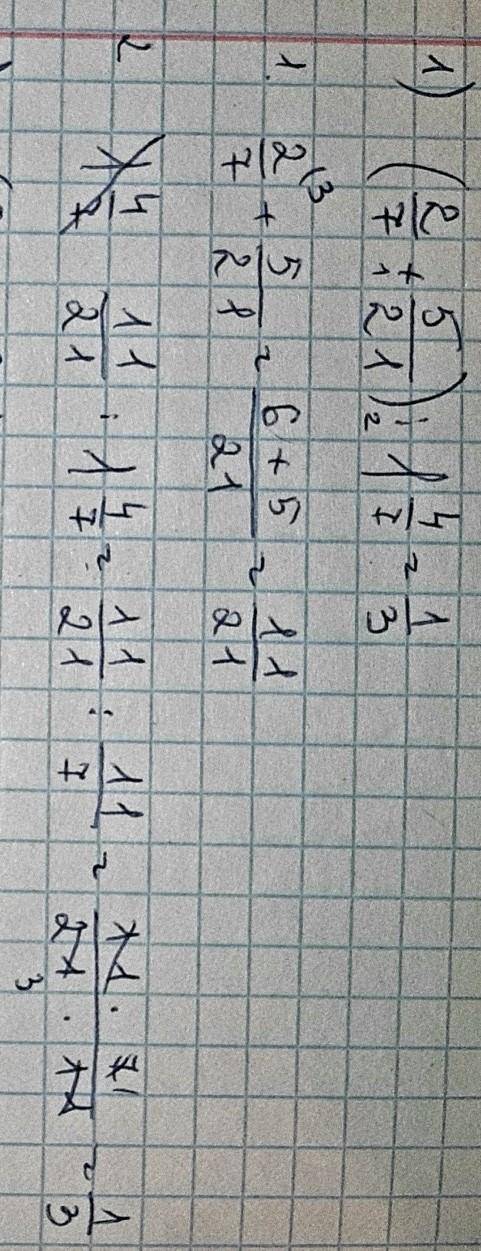 1) (2/7 + 5/21) : 1 4/7 = 1/3
1 2
1. 2/7 (3 + 5/21 = 6+5/21 = 11/21
2 1 4/7 11/21 : 1 4/7 = 11/21 : 11/7 = 11 · 7 1/21 · 11 = 1/3
3